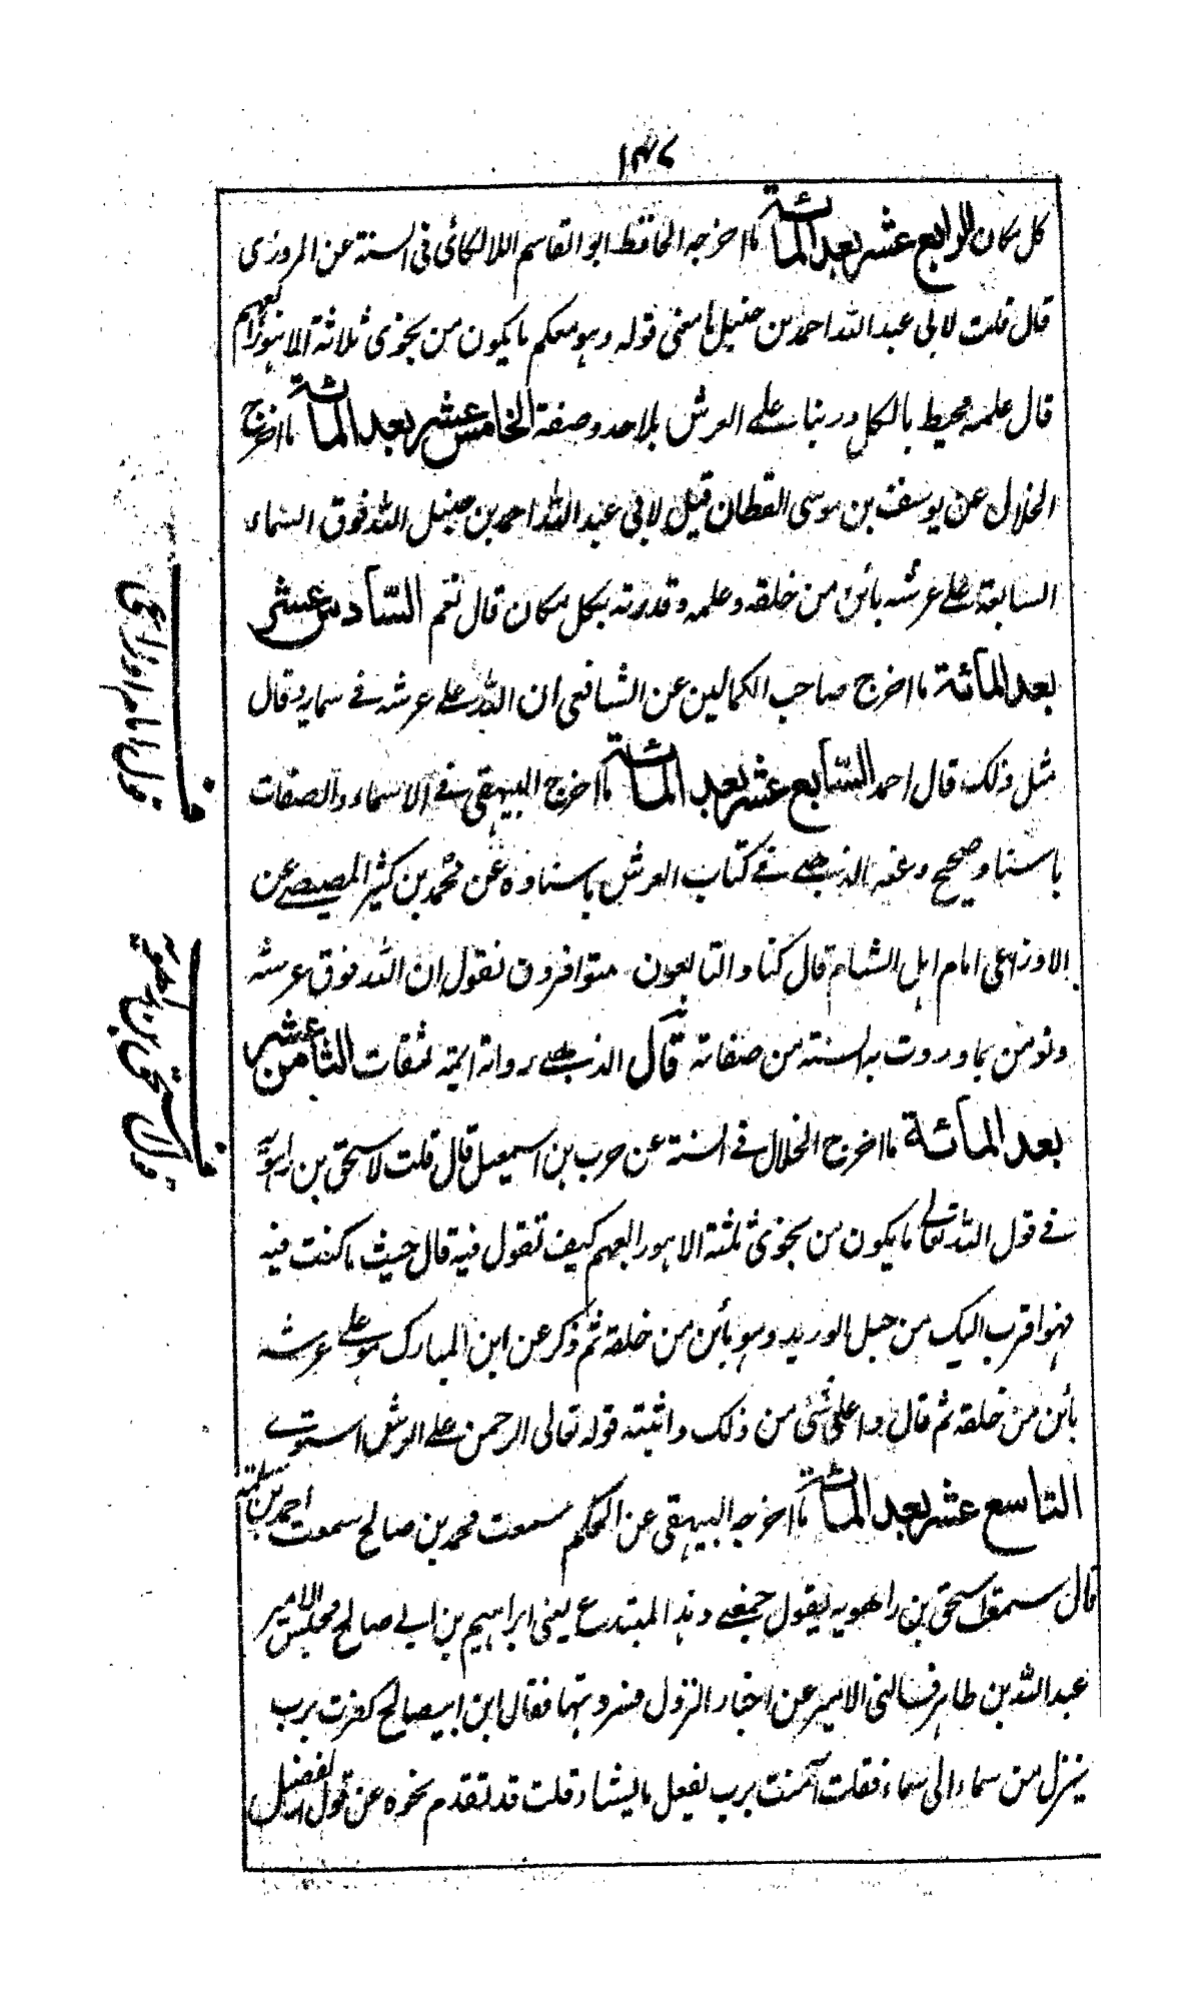 كل مكان الرابع عشر بعد المائة ما اخرجه الحافظ ابو القاسم اللالكائى فى السنة عن المروزى
قال قلت لابى عبد الله احمد بن حنبل ما معنى قوله وهو معكم ما يكون من نجوى ثلاثة الا هو رابعهم
قال علمه محيط بالكل وربنا على العرش بلا حد وصفة الخامس عشر بعد المائة ما اخرج
الخلال عن يوسف بن موسى القطان قيل لابى عبد الله احمد بن حنبل الله فوق السماء
السابعة على عرشه بائن من خلقه وعلمه وقدرته بكل مكان قال نعم السادس عشر
بعد المائة ما اخرج صاحب الكمالين عن الشافعى ان الله على عرشه فى سمائه وقال
مثل ذلك قال احمد السابع عشر بعد المائة ما اخرج البيهقى فى الاسماء والصفات
باسناد صحيح وعنه الذهبى فى كتاب العرش باسناده عن محمد بن كثير المصيصى عن
الاوزاعى امام اهل الشام قال كنا والتابعون متوافرون نقول ان الله فوق عرشه
ونومن بما وردت به السنة من صفاته قال الذهبى رواته ايمة ثقات الثامن عشر
بعد المائة ما اخرج الخلال فى السنة عن حرب بن اسمعيل قال قلت لاسحق بن راهويه
فى قول الله تعالى ما يكون من نجوى ثلثة الا هو رابعهم كيف تقول فيه قال حيث ما كنت فيه
فهو اقرب اليك من حبل الوريد وهو بائن من خلقه ثم ذكر عن ابن المبارك هو على عرشه
بائن من خلقه ثم قال واعلى شئ من ذلك واثبته قوله تعالى الرحمن على العرش استوى
التاسع عشر بعد المائة ما اخرجه البيهقى عن الحكم سمعت محمد بن صالح سمعت احمد بن سلمة
قال سمعت اسحق بن راهويه يقول جمعنى وهذا المبتدع يعنى ابراهيم بن ابى صالح مجلس الامير
عبد الله بن طاهر فسالنى الامير عن اخبار النزول فسردتها فقال ابن ابيصالح كفرت برب
ينزل من سماء الى سماء فقلت آمنت برب يفعل ما يشاء قلت قد تقدم نحوه عن قول الفضيل
ف
قول امام اوزاعى
ف
قول اسحق بن راهويه